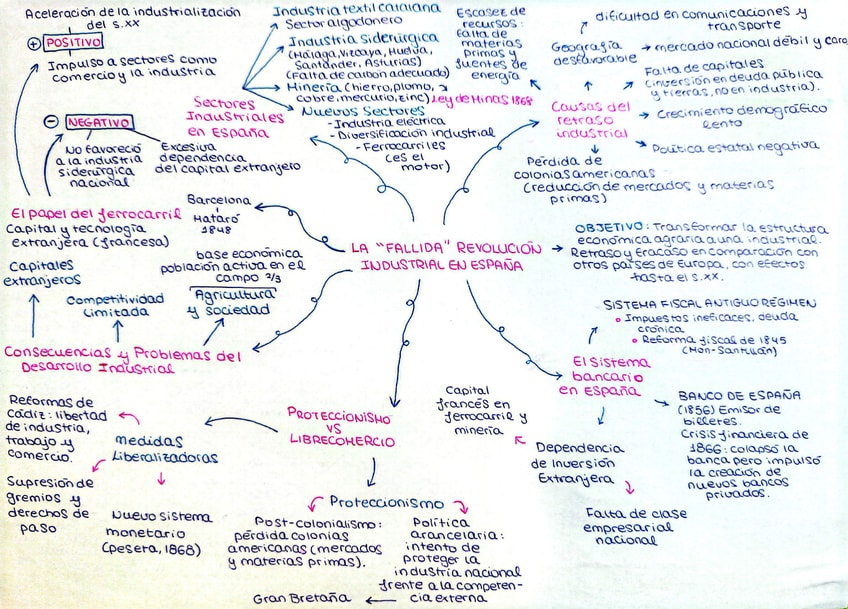 Aceleración de la industrialización
del s.xx
+ POSITIVO
Impulso a sectores como
comercio y la industria
- NEGATIVO
No favoreció
a la industria
siderúrgica
nacional
Excesiva
dependencia
del capital extranjero
El papel del ferrocarril
Capital y tecnología
extranjera (francesa)
Barcelona
Mataró
1848
Sectores
Industriales
en España
Industria textil catalana
Sector algodonero
Industria siderúrgica
(Málaga, Vizcaya, Huelva,
Santander, Asturias)
(Falta de carbón adecuado)
Minería (hierro, plomo,
cobre, mercurio, zinc) Ley de Minas 1868
Nuevos Sectores
- Industria eléctrica
- Diversificación industrial
- Ferrocarriles
(es el
motor)
Causas del
retraso
industrial
Escasez de
recursos:
falta de
materias
primas y
fuentes de
energía
Geografía
desfavorable
dificultad en comunicaciones y
transporte
mercado nacional débil y caro
Falta de capitales
(inversión en deuda pública
y tierras, no en industria).
Crecimiento demográfico
lento
Política estatal negativa
Pérdida de
colonias americanas
(reducción de mercados y materias
primas)
LA "FALLIDA" REVOLUCIÓN
INDUSTRIAL EN ESPAÑA
OBJETIVO: Transformar la estructura
económica agraria a una industrial.
Retraso y fracaso en comparación con
otros países de Europa, con efectos
hasta el s.xx.
Capitales
extranjeros
Competitividad
limitada
base económica
población activa en el
campo 2/3
Agricultura
y sociedad
Consecuencias y Problemas del
Desarrollo Industrial
SISTEMA FISCAL ANTIGUO RÉGIMEN
Impuestos ineficaces, deuda
crónica
Reforma fiscal de 1845
(Mon-Santillán)
El Sistema
bancario
en España
BANCO DE ESPAÑA
(1856) Emisor de
billetes.
Crisis financiera de
1866: colapsó la
banca pero impulsó
la creación de
nuevos bancos
privados.
Dependencia
de Inversión
Extranjera
Capital
francés en
ferrocarril y
minería
Falta de clase
empresarial
nacional
PROTECCIONISMO
VS
LIBRECOMERCIO
medidas
liberalizadoras
Reformas de
Cádiz: libertad
de industria,
trabajo y
comercio.
Supresión de
gremios y
derechos de
paso
Nuevo sistema
monetario
(peseta, 1868)
Proteccionismo
Post-colonialismo:
pérdida colonias
americanas (mercados
y materias primas).
Política
arancelaria:
intento de
proteger la
industria nacional
frente a la competen-
cia externa
Gran Bretaña